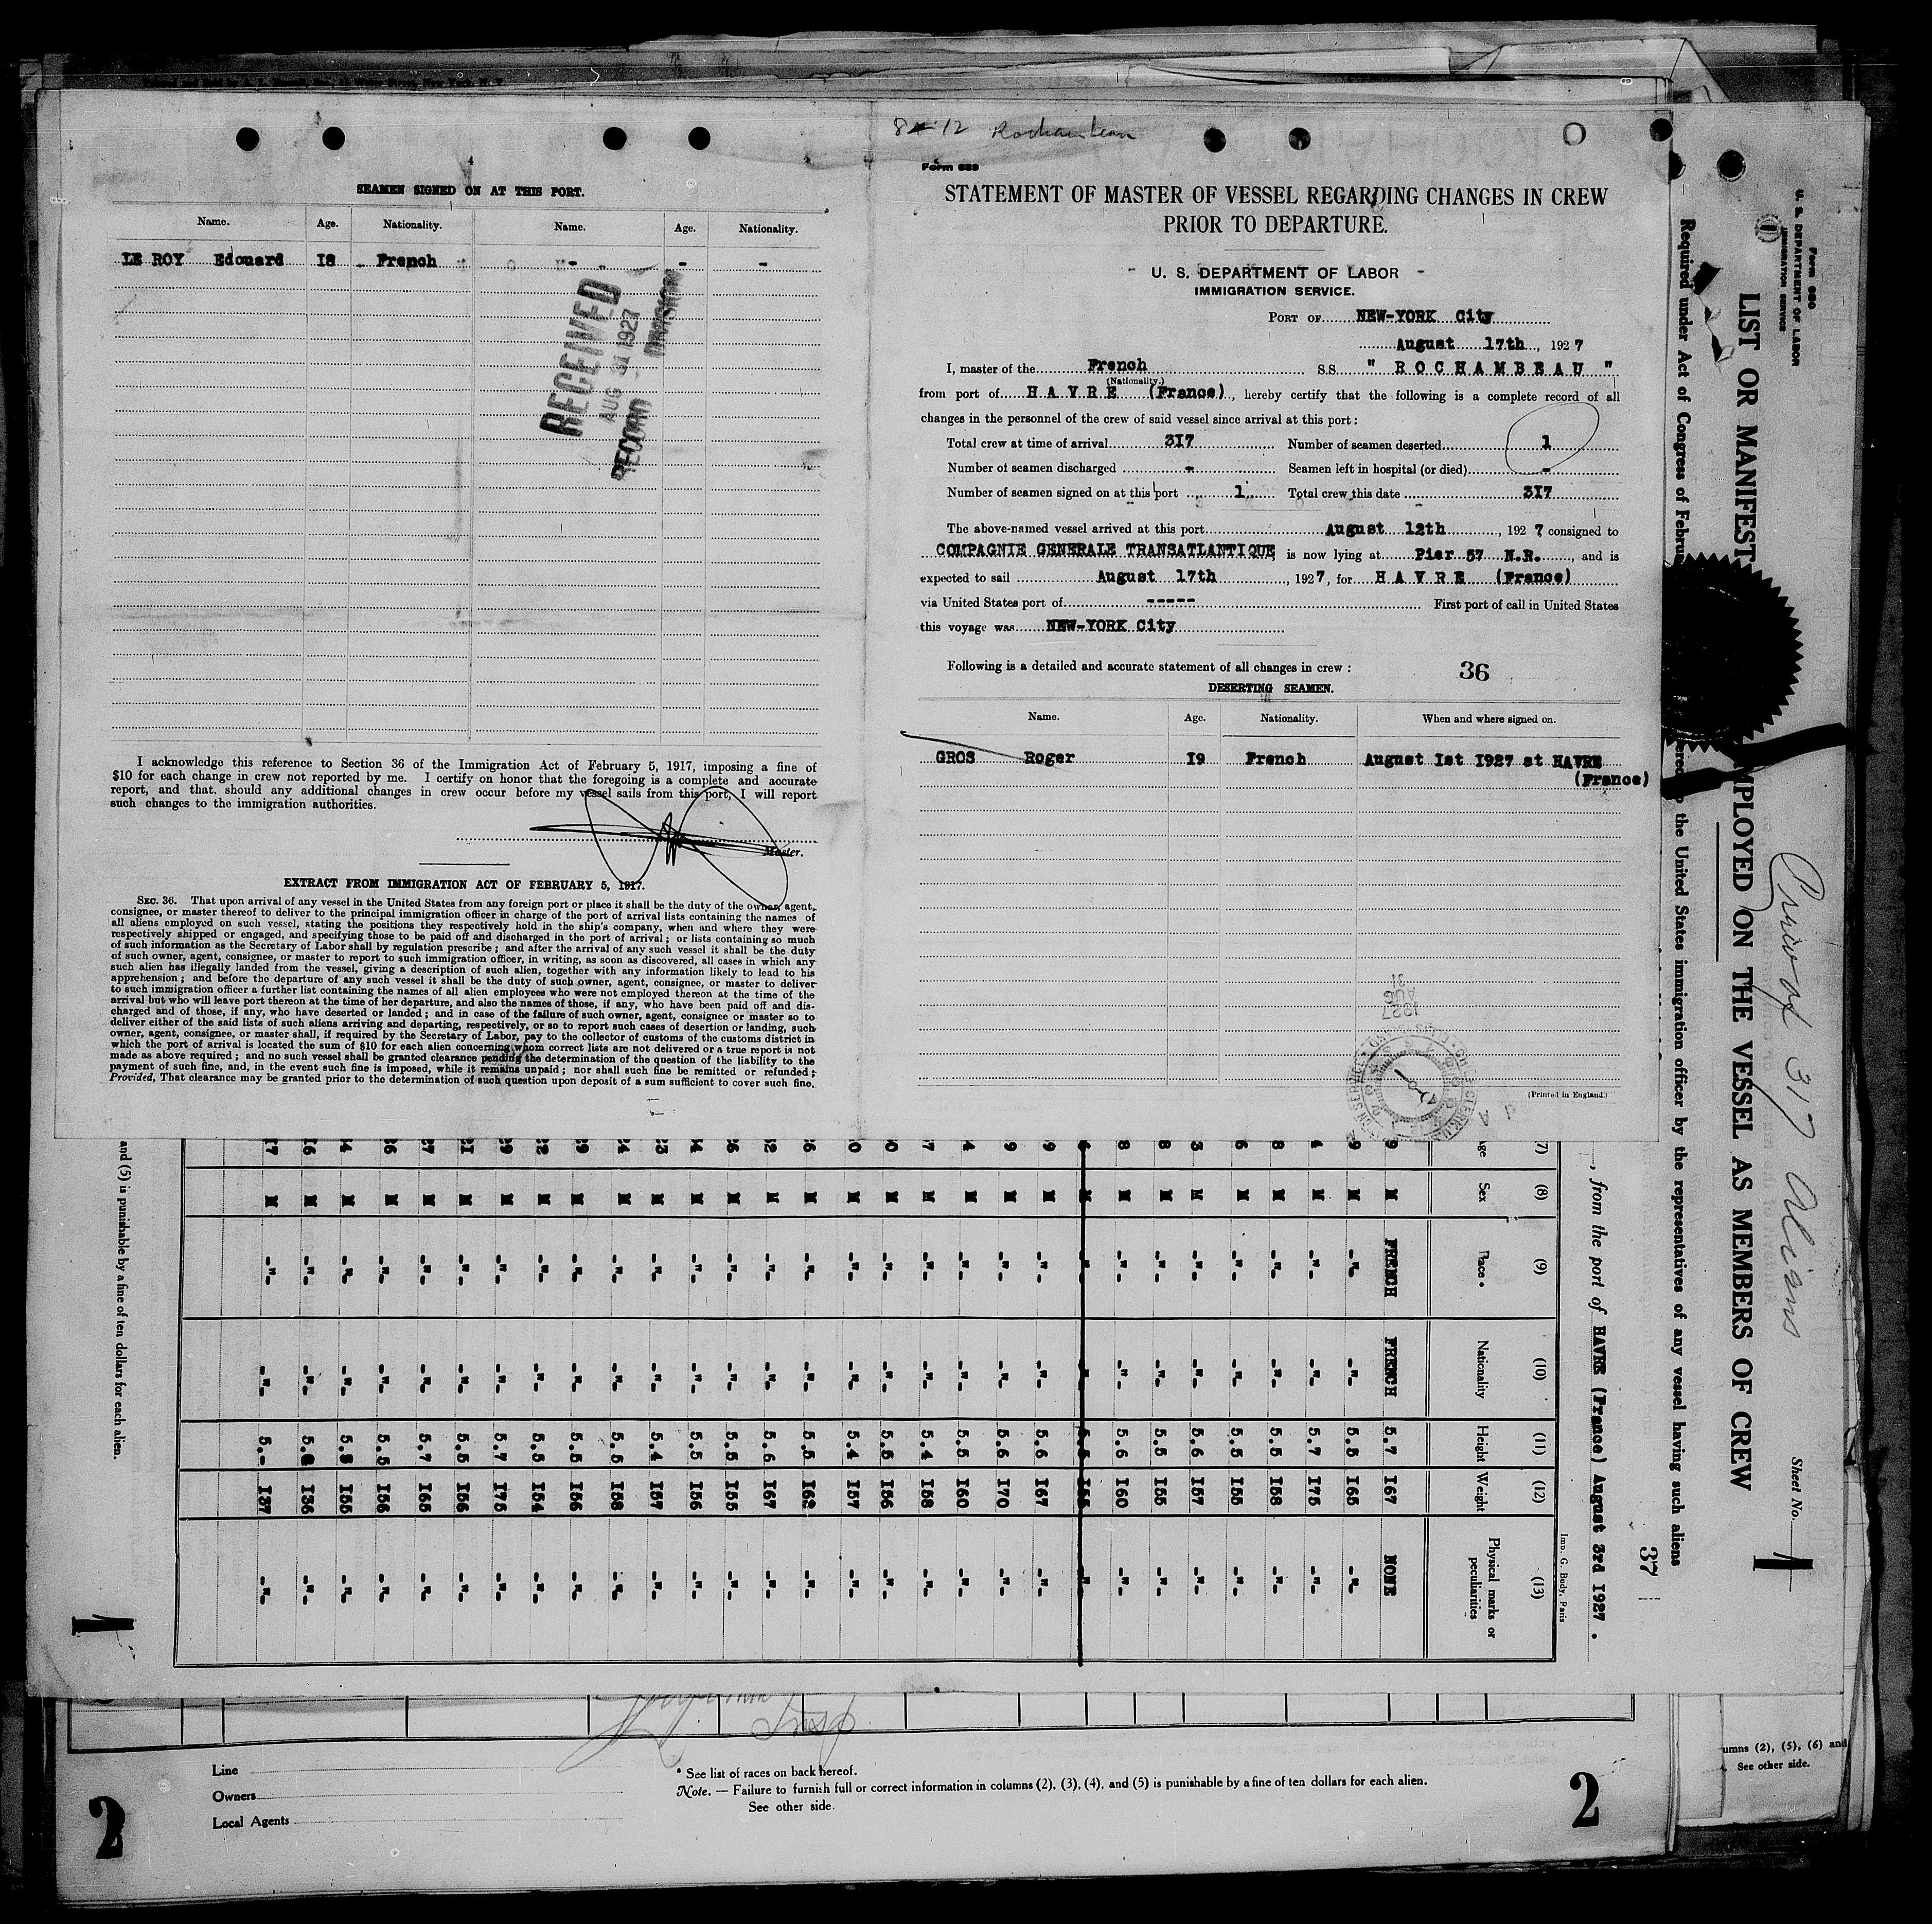 8-12 Rochambeau
SEAMEN SIGNED ON AT THIS PORT.
Name. Age. Nationality. Name. Age. Nationality.
LE ROY Edouard I8 French - - -
RECEIVED
AUG 31 1927
RECORD DIVISION
I acknowledge this reference to Section 36 of the Immigration Act of February 5, 1917, imposing a fine of
$10 for each change in crew not reported by me. I certify on honor that the foregoing is a complete and accurate
report, and that should any additional changes in crew occur before my vessel sails from this port, I will report
such changes to the immigration authorities.
Master.
EXTRACT FROM IMMIGRATION ACT OF FEBRUARY 5, 1917.
SEC. 36. That upon arrival of any vessel in the United States from any foreign port or place it shall be the duty of the owner, agent,
consignee, or master thereof to deliver to the principal immigration officer in charge of the port of arrival lists containing the names of
all aliens employed on such vessel, stating the positions they respectively hold in the ship's company, when and where they were
respectively shipped or engaged, and specifying those to be paid off and discharged in the port of arrival; or lists containing so much
of such information as the Secretary of Labor shall by regulation prescribe; and after the arrival of any such vessel it shall be the duty
of such owner, agent, consignee, or master to report to such immigration officer, in writing, as soon as discovered, all cases in which any
such alien has illegally landed from the vessel, giving a description of such alien, together with any information likely to lead to his
apprehension; and before the departure of any such vessel it shall be the duty of such owner, agent, consignee, or master to deliver
to such immigration officer a further list containing the names of all alien employees who were not employed thereon at the time of the
arrival but who will leave port thereon at the time of her departure, and also the names of those, if any, who have been paid off and dis-
charged and of those, if any, who have deserted or landed; and in case of the failure of such owner, agent, consignee or master so to
deliver either of the said lists of such aliens arriving and departing, respectively, or so to report such cases of desertion or landing, such
owner, agent, consignee, or master shall, if required by the Secretary of Labor, pay to the collector of customs of the customs district in
which the port of arrival is located the sum of $10 for each alien concerning whom correct lists are not delivered or a true report is not
made as above required; and no such vessel shall be granted clearance pending the determination of the question of the liability to the
payment of such fine, and, in the event such fine is imposed, while it remains unpaid; nor shall such fine be remitted or refunded;
Provided, That clearance may be granted prior to the determination of such question upon deposit of a sum sufficient to cover such fine.
Form 689
STATEMENT OF MASTER OF VESSEL REGARDING CHANGES IN CREW
PRIOR TO DEPARTURE.
U. S. DEPARTMENT OF LABOR
IMMIGRATION SERVICE.
PORT OF NEW-YORK City
August 17th, 1927
I, master of the French S.S. " R O C H A M B E A U "
(Nationality.)
from port of H A V R E (France), hereby certify that the following is a complete record of all
changes in the personnel of the crew of said vessel since arrival at this port:
Total crew at time of arrival 3I7 Number of seamen deserted 1
Number of seamen discharged - Seamen left in hospital (or died) -
Number of seamen signed on at this port 1 Total crew this date 3I7
The above-named vessel arrived at this port August 12th, 1927 consigned to
COMPAGNIE GENERALE TRANSATLANTIQUE is now lying at Pier 57 N.R., and is
expected to sail August 17th, 1927, for H A V R E (France)
via United States port of ----- First port of call in United States
this voyage was NEW-YORK City
Following is a detailed and accurate statement of all changes in crew: 36
DESERTING SEAMEN.
Name. Age. Nationality. When and where signed on.
GROS Roger I9 French August 1st I927 at HAVRE
(France)
(Printed in England.)
Form 680
U. S. DEPARTMENT OF LABOR
IMMIGRATION SERVICE
Sheet No. 1
317 Aliens
LIST OR MANIFEST
MPLOYED ON THE VESSEL AS MEMBERS OF CREW
Required under Act of Congress of Februa
the United States immigration officer by the representatives of any vessel having such aliens
37
, from the port of HAVRE (France) August 3rd I927.
Imp. G. Budy, Paris
(7) (8) (9) (10) (11) (12) (13)
Age Sex Race * Nationality Height Weight Physical marks or peculiarities
9 M FRENCH FRENCH 5.7 I67 NONE
9 M -"- -"- 5.5 I65 -"-
4 M -"- -"- 5.7 I75 -"-
8 M -"- -"- 5.5 I58 -"-
6 M -"- -"- 5.5 I55 -"-
3 M -"- -"- 5.6 I57 -"-
8 M -"- -"- 5.5 I55 -"-
8 M -"- -"- 5.6 I60 -"-
9 M -"- -"- 5.6 I67 -"-
9 M -"- -"- 5.6 I70 -"-
4 M -"- -"- 5.5 I60 -"-
7 M -"- -"- 5.4 I58 -"-
0 M -"- -"- 5.5 I56 -"-
0 M -"- -"- 5.4 I57 -"-
6 M -"- -"- 5.5 I62 -"-
2 M -"- -"- 5.6 I67 -"-
6 M -"- -"- 5.5 I55 -"-
4 M -"- -"- 5.5 I56 -"-
3 M -"- -"- 5.4 I57 -"-
4 M -"- -"- 5.5 I58 -"-
29 M -"- -"- 5.5 I66 -"-
22 M -"- -"- 5.5 I54 -"-
29 M -"- -"- 5.7 I75 -"-
21 M -"- -"- 5.5 I56 -"-
27 M -"- -"- 5.7 I65 -"-
6 M -"- -"- 5.5 I56 -"-
4 M -"- -"- I55 -"-
I6 M -"- -"- I36 -"-
I7 M -"- -"- 5.- I37 -"-
and (5) is punishable by a fine of ten dollars for each alien.
Line
Owners
Local Agents
* See list of races on back hereof.
Note. — Failure to furnish full or correct information in columns (2), (3), (4), and (5) is punishable by a fine of ten dollars for each alien.
See other side.
2
2
umns (2), (5), (6) and
See other side.